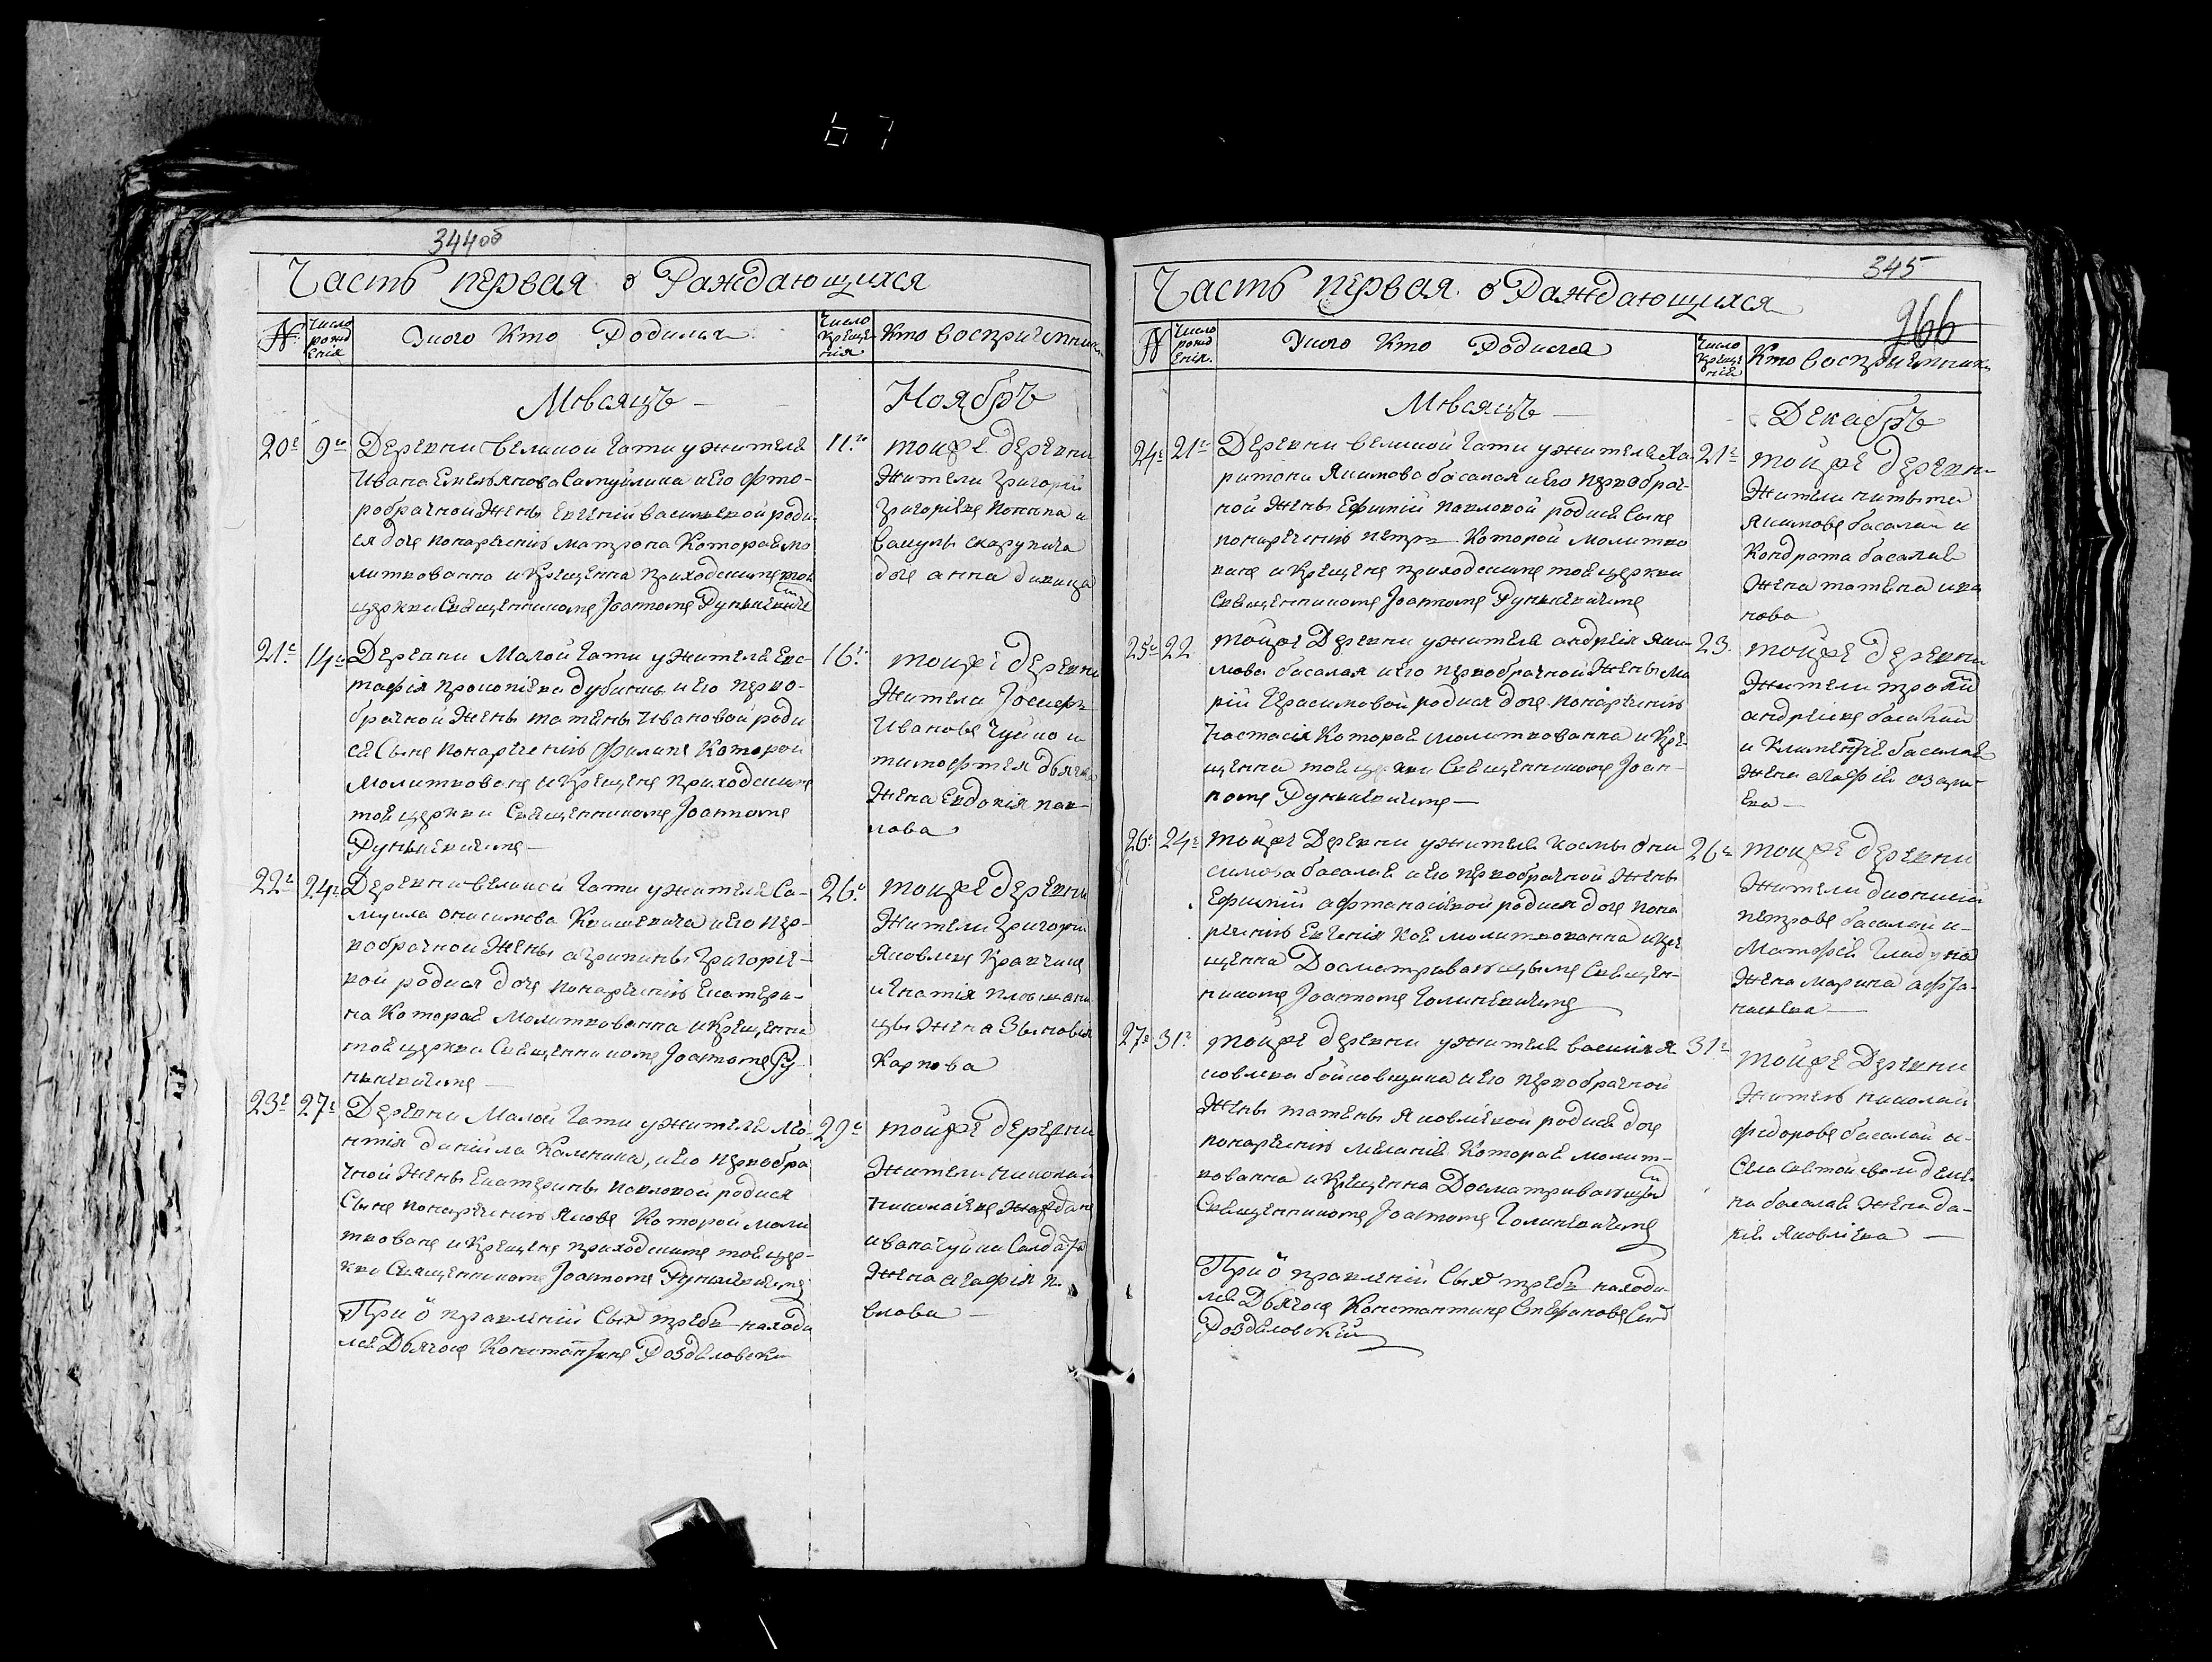 344об
Часть первая о Раждающихся
№
Число рожденія
У кого Кто Родился
Число крещенія
Кто восприемник
Мѣсяцъ Ноябръ
20е 9го 11го
Деревни Великой Гати у жителя
Ивана Емельянова Самуйлика и Его фто-
робрачной Жены Евгеніи васильевой роди
ся дочь понаречению матрона Которая мо
литвованна и Крещенна приходским той
церкви Священником Іоанном Рункевичем
тойже деревни
Жители Григорій
Григоріев и
дочь анна девица
21е 14го 16го
Деревни Малой Гати у жителя Евс-
тафія прокопіева и Его перво-
брачной Жены татяны Ивановой роди
ся Сын понаречению Филип Которой
молитвован и Крещен приходским
той церкви Священником Іоанном
Рункевичем
тойже деревни
Жители Іосиф
Иванов Чуйко и
тимофтея дьячка
Жена Евдокія пав-
лова
22е 24го 26го
Деревни великой Гати у жителя Са-
муила онисимова и Его пер-
вобрачной Жены агрипины Григорие-
вой родися дочь понаречению Екатери-
на Которая молитвованна и Крещенна
той церкви Священником Іоанном Ру-
нкевичем
тойже деревни
Жители Григорій
Яковлев
и Игнатія
Жена Зыновія
Карпова
23е 27е 29е
Деревни Малой Гати у жителя Лео-
нтія даніила Каленика, и Его первобра
чной Жены Екатерины павловой родися
Сын понаречению Яков Которой моли
твован и Крещен приходским той цер-
кви Священником Іоанном Рункевичем
тойже деревни
Жители николай
николаіев
ивана Чуйка Салдата
Жена агафія п
влова
При о правленіи Сих треб находи
лся Дьячок Константин Роздяловски
345
266
Часть первая о Раждающихся
№
Число рожденія
У кого Кто Родился
Число крещенія
Кто восприемник
Мѣсяцъ Декабръ
24е 21го 21е
Деревни великой Гати у жителя Ха-
ритона Якимова басалая и Его первобрач-
ной Жены Ефимій павловой родися Сын
понаречению петр Которой молитво
ван и Крещен приходским той церкви
Священником Іоанном Рункевичем
тойже деревни
Жители никита
Якимов басалай и
Кондрата басалая
Жена татяна ива
нова
25е 22 23
тойже Деревни у жителя андрея Яки-
мова басалая и Его первобрачной Жены Ма
рій Герасимовой родися дочь понаречению
Настасія Которая молитвованна и Кре-
щенна той церкви Священником Іоан-
ном Рункевичем
тойже деревни
Жители
андреиев басалай
и Климентія басалая
Жена агафія
ева
26е 24е 26е
тойже Деревни у жителя Космы они
симова басалая и Его первобрачной Жены
Ефимій афтанасіевой родися дочь пона
речению Евгенія Коя молитвованна и кре
щенна Досматривающым Священ-
ником Іоанном Голинкевичем
тойже деревни
Жители дионисій
петров басалай и
Матфея Гладуна
Жена Марина афта-
насиева
27е 31е 31е
тойже деревни у жителя василия Я
ковлева бойковщика и Его первобрачной
Жены татяны Яковлевой родися дочь
понаречению меланія Которая молит-
вованна и Крещенна Досматривающым
Священником Іоанном Голинкевичем
тойже Деревни
Житель николай
федоров басалай и
на басалая Жена да-
рія Яковлева
При о правленіи Сих треб находи
лся Дьячок Константин Стефанов Син
Роздяловскій